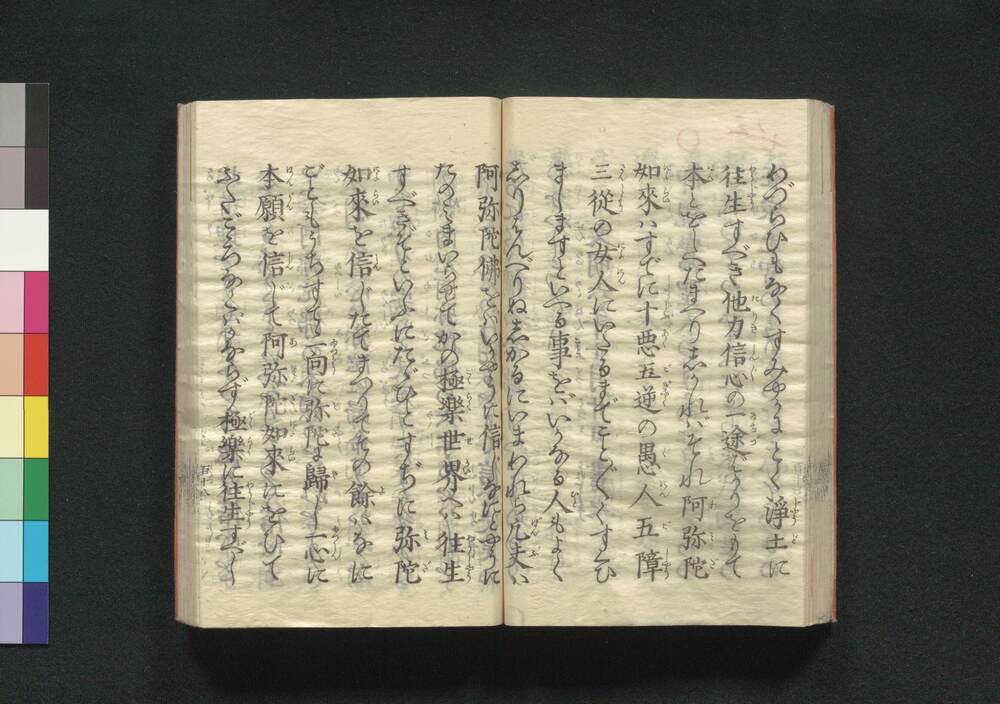 わづらひもなくすみやかにとく浄土に
往生すべき他力信心の一途ばかりをもて
本とをしへたまへりしかれバそれ阿弥陀
如來ハすでに十悪五逆の愚人五障
三從の女人にいたるまでこと〴〵くすくひ
ましますといへる事をバいかなる人もよく
しりはんべりぬしかるにいまわれら凡夫ハ
阿弥陀佛をバいかやうに信じなにとやうに
たのみまいらせてかの極樂世界へハ往生
すべきぞといふにたゞひとすぢに弥陀
如來を信じたてまつりてその餘ハなに
ごともうちすてゝ一向に弥陀に歸し一心に
本願を信じて阿弥陀如來にをひて
ふたごゝろなくバかならず極樂に往生すべし
五十八